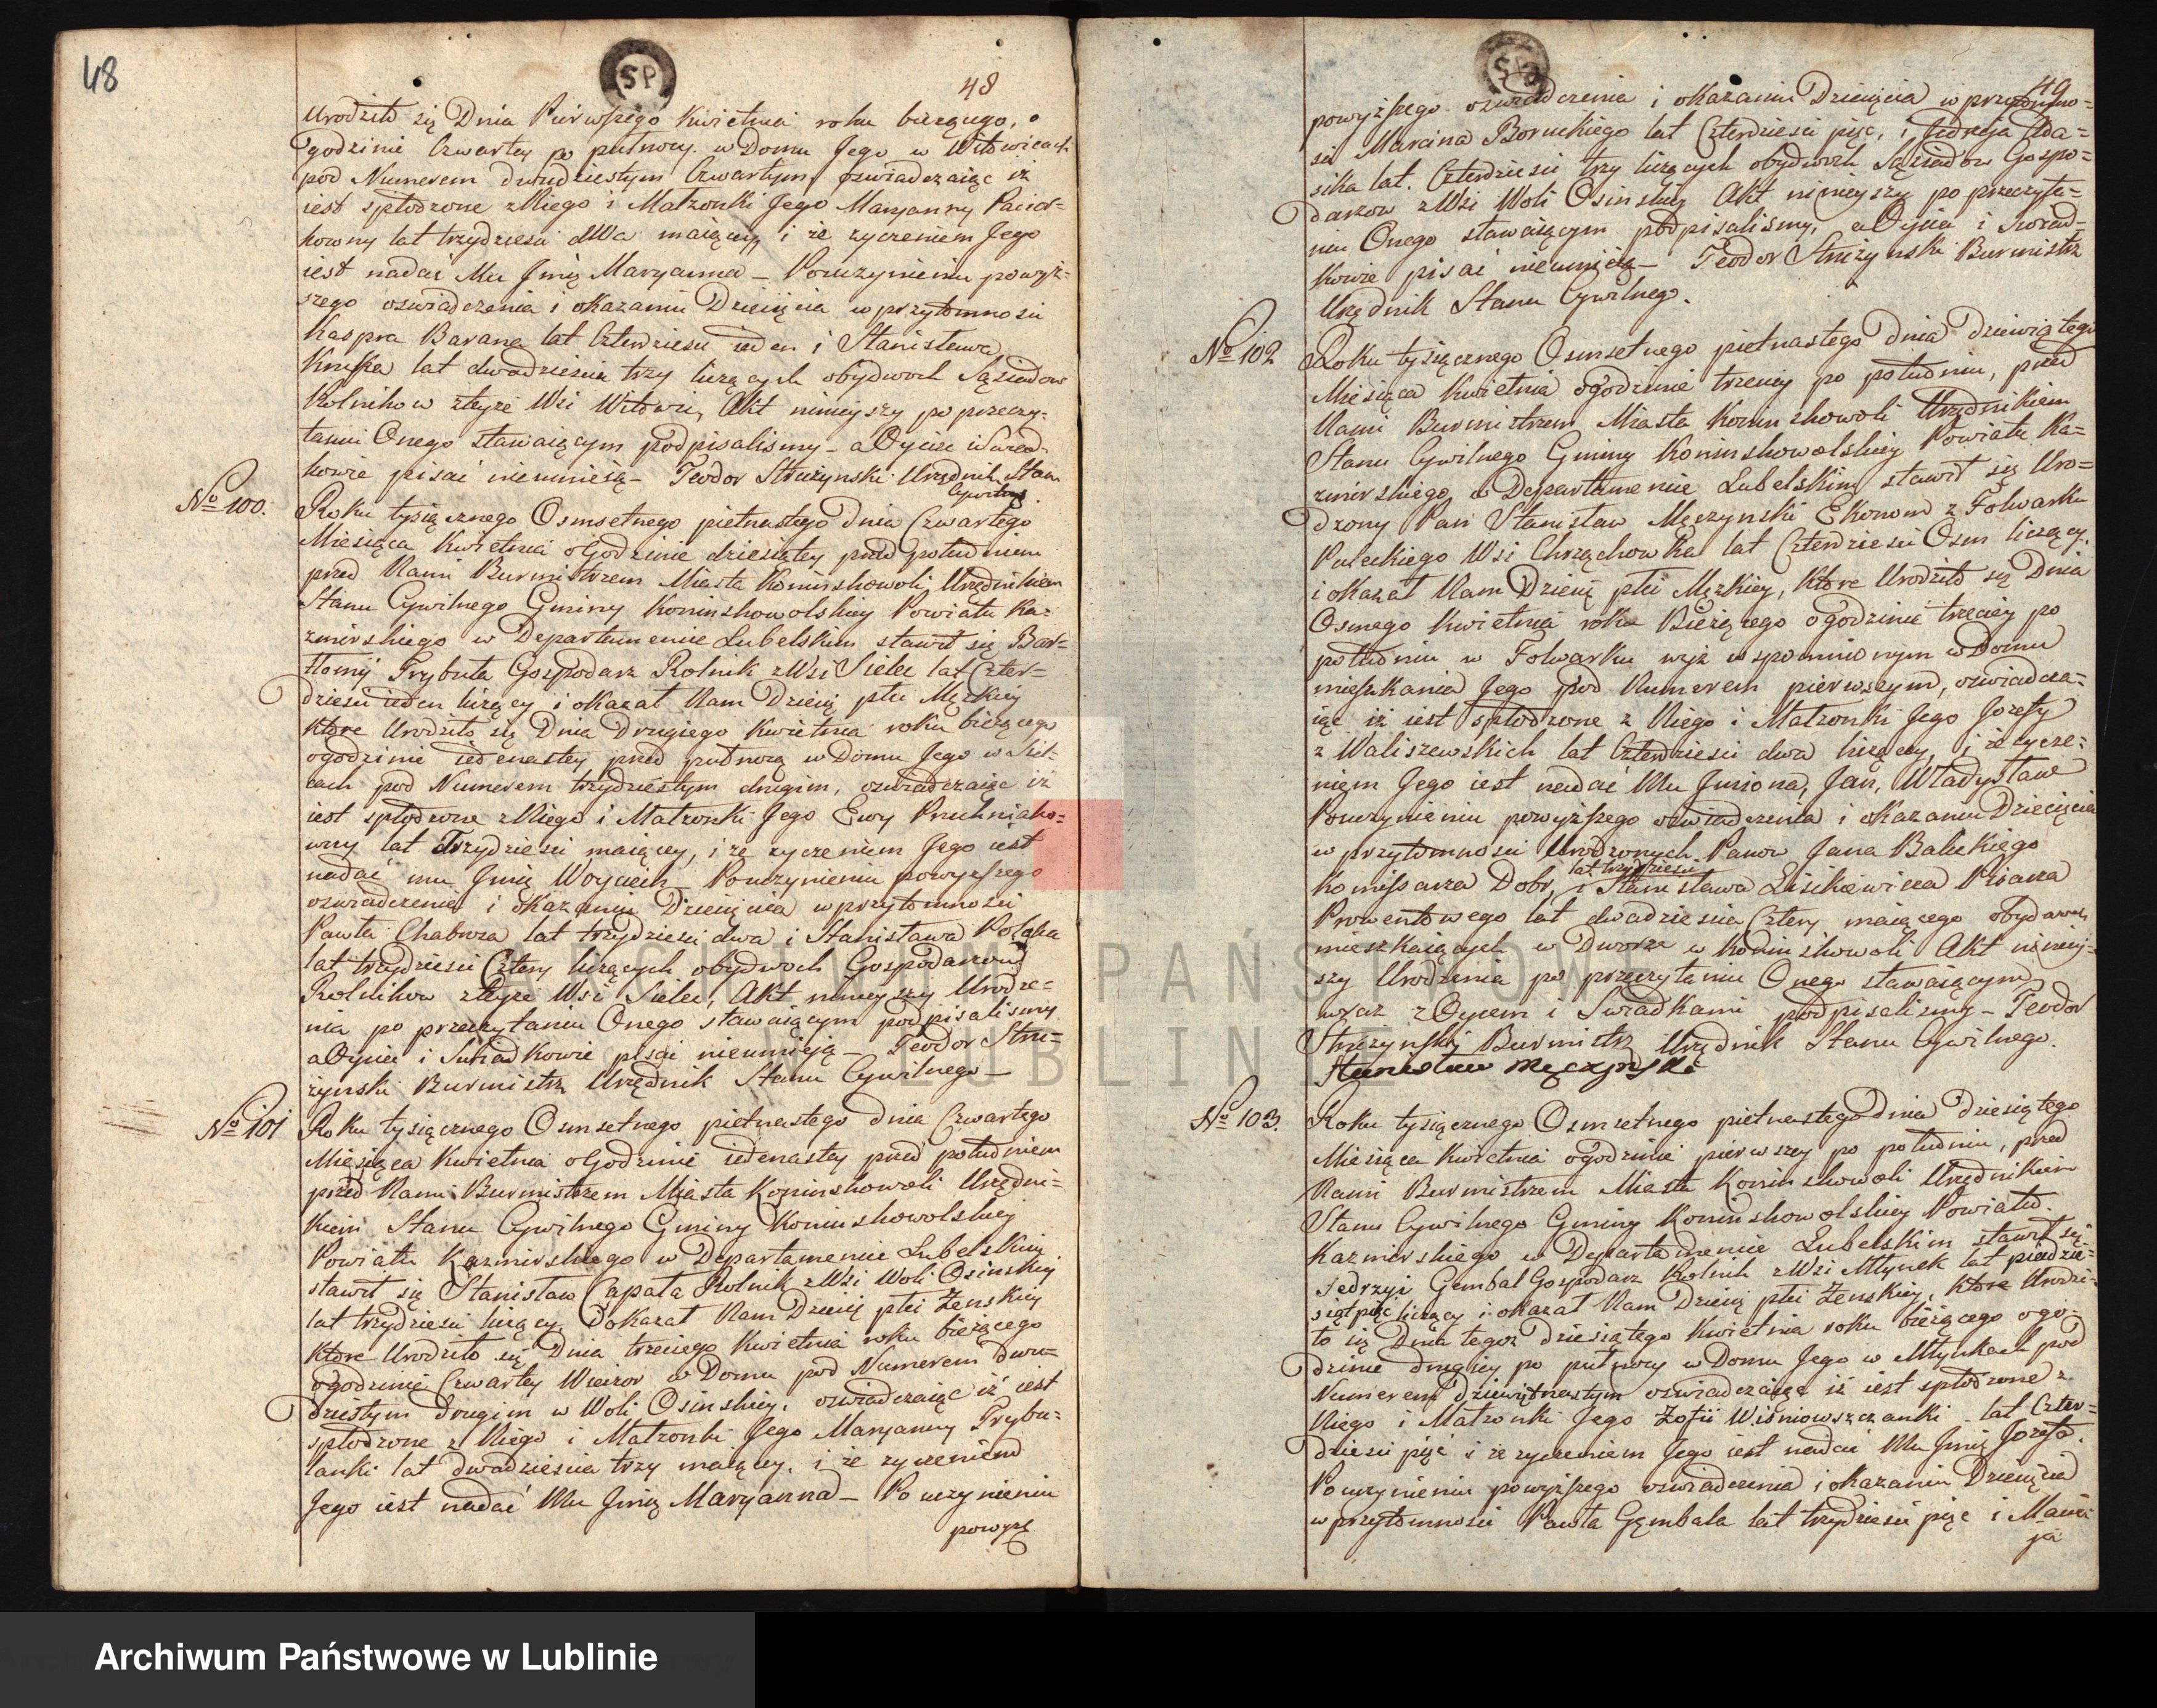 48
SP
48
Urodziło się Dnia Pierwszego Kwietnia roku bieżącego, o
godzinie Czwartey po pułnocy w Domu Jego w Witowicach
pod Numerem dwudziestym Czwartym, oswiadczaiąc iż
iest spłodzone z Niego i Małzonki Jego Maryanny
kowny lat trzydziesci dwa maiącey, i że życzeniem Jego
iest nadać Mu Jmię Maryanna – Po uczynieniu powyż-
szego oswiadczenia i okazaniu Dziecięcia w przytomnosci
Kaspra Barana lat Czterdziesci ieden i Stanisława
lat dwadziescia trzy liczących obydwoch Sąsiadow
Rolnikow z teyże Wsi Witowic, Akt ninieyszy po przeczy-
taniu Onego stawaiącym podpisalismy – a Oyciec i Swiad-
kowie pisać nieumieią – Teodor Struzynski Urzędnik Stanu
Cywilnego.
No 100.
Roku tysiącznego Osmsetnego pietnastego dnia Czwartego
Miesiąca Kwietnia o Godzinie dziesiątey przed południem
przed Nami Burmistrzem Miasta Koninskowoli Urzędnikiem
Stanu Cywilnego Gminy Koninskowolskiey Powiatu Ka-
zmirskiego w Departamencie Lubelskim stawił się Bar-
tłomiy Trybuła Gospodarz Rolnik z Wsi Sielec lat Czter-
dziesci ieden liczący i okazał Nam Dziecię płci Męzkiey
które Urodziło się Dnia Drugiego Kwietnia roku bieżącego
o godzinie iedenastey przed pułnocą w Domu Jego w Siel-
cach pod Numerem trzydziestym drugim, oswiadczaiąc iż
iest spłodzone z Niego i Małzonki Jego Ewy Pruchniako-
wny lat Trzydziesci maiącey, i że życzeniem Jego iest
nadać mu Jmię Woyciech – Po uczynieniu powyższego
oswiadczenia i okazaniu Dziecięcia w przytomnosci
Pawła Chabrosa lat trzydziesci dwa i Stanisława Polaka
lat trzydziesci Cztery liczących obydwoch Gospodarzow
Rolnikow z teyże Wsi Sielec, Akt ninieyszy Urodze-
nia po przeczytaniu Onego stawaiącym podpisalismy
a Oyciec i Swiadkowie pisać nieumieią – Teodor Stru-
zynski Burmistrz Urzędnik Stanu Cywilnego –
No 101
Roku tysiącznego Osmsetnego pietnastego dnia Czwartego
Miesiąca Kwietnia o Godzinie iedenastey przed południem
przed Nami Burmistrzem Miasta Koninskowoli Urzędni-
kiem Stanu Cywilnego Gminy Koninskowolskiey
Powiatu Kazmirskiego w Departamencie Lubelskim
stawił się Stanisław Capała Rolnik z Wsi Woli Osinskiey
lat trzydziesci liczący, i okazał Nam Dziecię płci Żenskiey
które Urodziło się Dnia trzeciego Kwietnia roku bieżącego
o godzinie Czwartey Wieczor w Domu pod Numerem dwu-
dziestym drugim w Woli Osinskiey, oswiadczaiąc iż iest
spłodzone z Niego i Małzonki Jego Maryanny Trybu-
lanki lat dwadziescia trzy maiącey, i że życzeniem
Jego iest nadać Mu Jmię Maryanna – Po uczynieniu
powyż
SP
49
powyższego oswiadczenia i okazaniu Dziecięcia w przytomno-
sci Marcina Boruckiego lat Czterdziesci pięć, i Jędrzeja Ada-
sika lat Czterdziesci trzy liczących obydwoch Sąsiadow Gospo-
darzow z Wsi Woli Osinskiey Akt ninieyszy po przeczyta-
niu Onego stawaiącym podpisalismy, a Oyciec i Swiad-
kowie pisać nieumieią – Teodor Struzynski Burmistrz
Urzędnik Stanu Cywilnego.
No 102
Roku tysiącznego Osmsetnego pietnastego dnia dziewiątego
Miesiąca Kwietnia o godzinie trzeciey po południu, przed
Nami Burmistrzem Miasta Koninskowoli Urzędnikiem
Stanu Cywilnego Gminy Koninskowolskiey Powiatu Ka-
zmirskiego w Departamencie Lubelskim stawił się Uro-
dzony Pan Stanisław Męczynski Ekonom z Folwarku
Wsi Chrząchowka lat Czterdziesci Osm liczący,
i okazał Nam Dziecię płci Męzkiey, które Urodziło się Dnia
Osmego Kwietnia roku Bieżącego o godzinie trzeciey po
południu w Folwarku wyż wspomnionym w Domu
mieszkania Jego pod Numerem pierwszym, oswiadcza-
iąc iż iest spłodzone z Niego i Małzonki Jego Jozefy
z Waliszewskich lat Czterdziesci dwa liczącey, i że zycze-
niem Jego iest nadać Mu Jmiona, Jan, Władysław
Po uczynieniu powyższego oswiadczenia i okazaniu Dziecięcia
w przytomnosci Urodzonych Panow Jana Balickiego
lat trzydziesci
Komissarza Dobr, i Stanisława Lisikiewicza Pisarza
Prowentowego lat dwadziescia Cztery maiącego obydwoch
mieszkaiących w Dworze w Koninskowoli Akt niniey-
szy Urodzenia po przeczytaniu Onego stawaiącym
wraz z Oycem i Swiadkami podpisalismy – Teodor
Struzynski Burmistrz Urzędnik Stanu Cywilnego.
Stanisław Męczynski
No 103.
Roku tysiącznego Osmsetnego pietnastego dnia dziesiątego
Miesiąca Kwietnia o godzinie pierwszey po południu, przed
Nami Burmistrzem Miasta Koninskowoli Urzędnikiem
Stanu Cywilnego Gminy Koninskowolskiey Powiatu
Kazmirskiego w Departamencie Lubelskim stawił się
Jedrzyi Gembal Gospodarz Rolnik z Wsi Młynek lat piędzie-
siąt pięc liczący i okazał Nam Dziecię płci Żenskiey, które Urodzi-
ło się Dnia tegoż dziesiątego Kwietnia roku bieżącego o go-
dzinie drugiey po pułnocy w Domu Jego w Młynkach pod
Numerem dziewiętnastym oswiadczaiąc iż iest spłodzone z
Niego i Małzonki Jego Zofii Wisniowszczanki lat Czter-
dziesci pięć i że zyczeniem Jego iest nadać Mu Jmię Jozefa.
Po uczynieniu powyższego oswiadczenia i okazaniu Dziecięcia
w przytomnosci Pawła Gęmbala lat trzydziesci pięc i Maci-
ja
ARCHIWUM PAŃSTWOWE
W LUBLINIE
Archiwum Państwowe w Lublinie